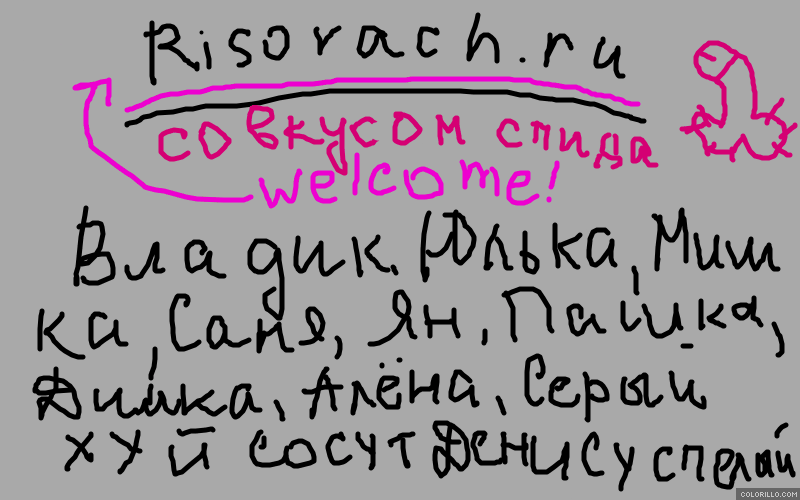 Risovach.ru
со вкусом спида
welcome!
Владик, Юлька, Миш
ка, Саня, Ян, Пашка,
Димка, Алёна, Серый
хуй сосут Денису спелый
COLORILLO.COM